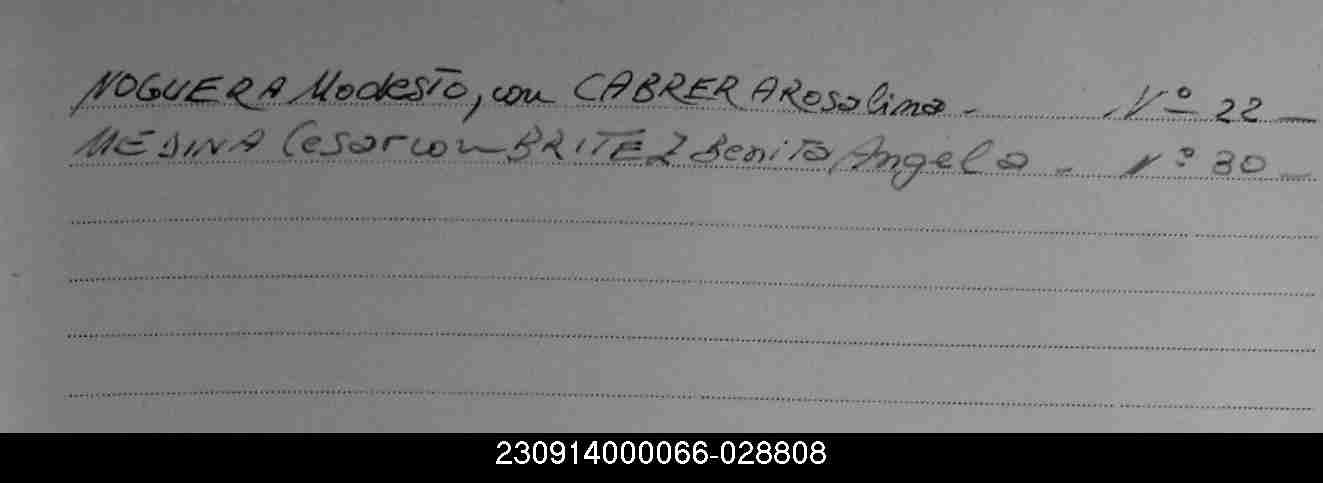 NOGUERA Modesto, con CABRERA Rosalina - Nº 22 —
MEDINA Cesar con BRITEZ Benita Angela - Nº 30 —
230914000066-028808